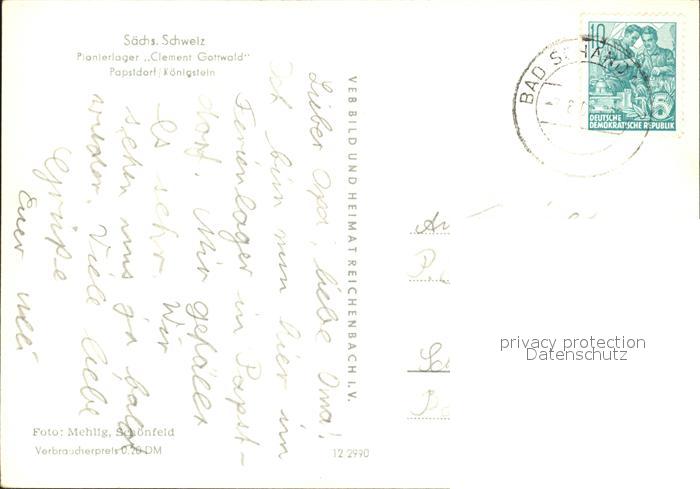 Sächs. Schweiz
Pionierlager „Clement Gottwald"
Papstdorf/Königstein
Lieber Opa, liebe Oma!
Ich bin nun hier im
Ferienlager in Papst-
dorf. Mir gefällt
es sehr. Wir
sehen uns ja bald
wieder. Viele liebe
Grüße
Euer Ulli
Foto: Mehlig, Schönfeld
Verbraucherpreis 0,20 DM
12 2990
VEB BILD UND HEIMAT REICHENBACH I. V.
BAD SCHAND
10
5
DEUTSCHE
DEMOKRATISCHE REPUBLIK
privacy protection
Datenschutz